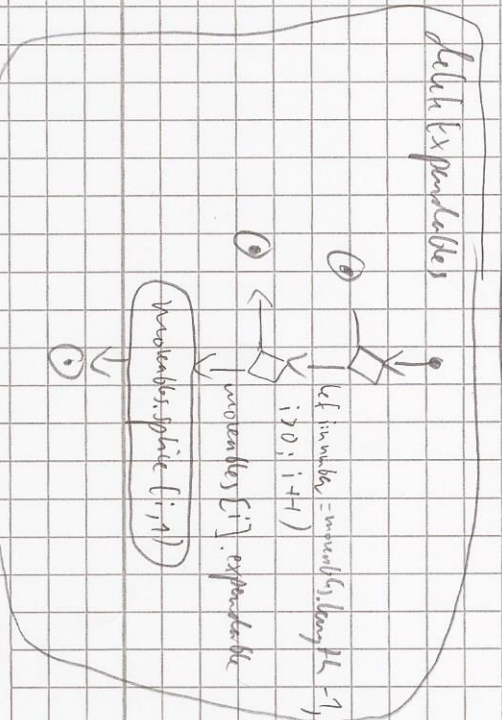 deleteExpendables
let i:number = moveables.length -1;
i>0; i++)
moveables[i].expendable
moveables.splice(i,1)